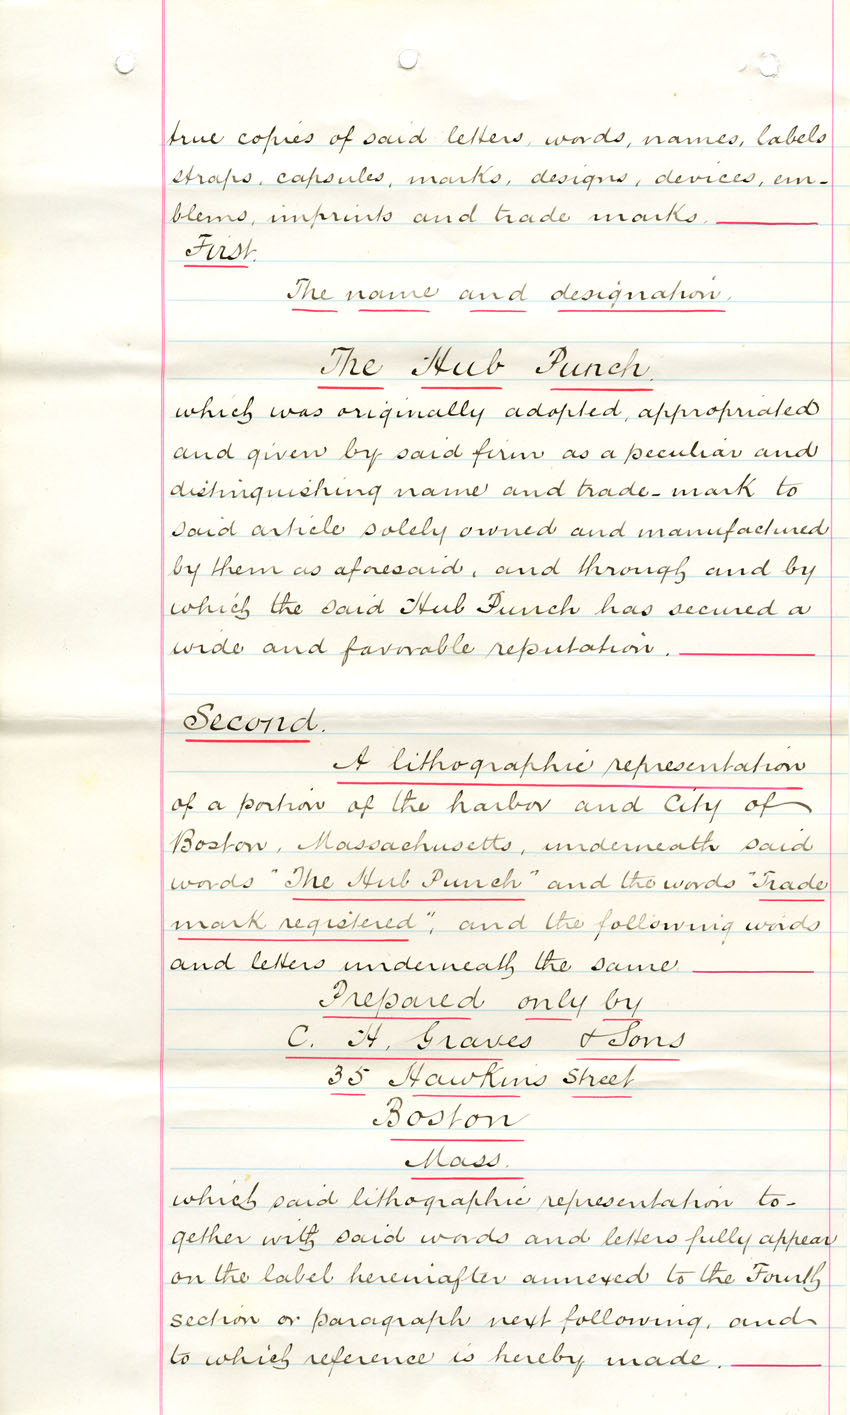 true copies of said letters, words, names, labels
straps, capsules, marks, designs, devices, em-
blems, imprints and trade marks.
First.
The name and designation.
The Hub Punch.
which was originally adopted, appropriated
and given by said firm as a peculiar and
distinguishing name and trade-mark to
said article solely owned and manufactured
by them as aforesaid, and through and by
which the said Hub Punch has secured a
wide and favorable reputation.
Second.
A lithographic representation
of a portion of the harbor and City of
Boston, Massachusetts, underneath said
words "The Hub Punch" and the words "Trade
mark registered", and the following words
and letters underneath the same
Prepared only by
C. H. Graves & Sons
35 Hawkins Street
Boston
Mass.
which said lithographic representation to-
gether with said words and letters fully appear
on the label hereinafter annexed to the Fourth
section or paragraph next following, and
to which reference is hereby made.